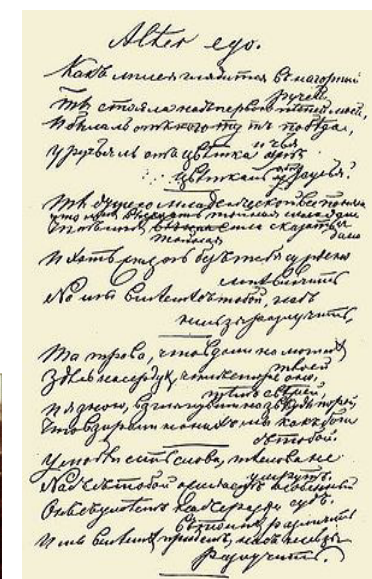 Alter ego.
Какъ лилея глядится въ нагорный
ручей
Ты стояла надъ первою пѣсней моей,
И была ли побѣда,
и чья
У ручья ль отъ цвѣтка
цвѣтка ль отъ ручья?
Ты душою младенческой все поняла
что мнѣ высказать тайная сила
дала
И хоть жизнь безъ тебя суждено
мнѣ влачить
Но мы вмѣстѣ съ тобой, насъ
нельзя разлучить.
Та трава, что вдали на могилѣ
твоей
Здѣсь на сердцѣ, чѣмъ старѣ оно,
тѣмъ свѣжей
И я знаю, взглянувши на звѣзды порой
Что взирали на нихъ мы какъ боги
съ тобой.
У любви есть слова, тѣ слова не
умрутъ.
Насъ съ тобой ожидаетъ особенный
судъ
различить
И мы вмѣстѣ придемъ, насъ нельзя
разлучить.